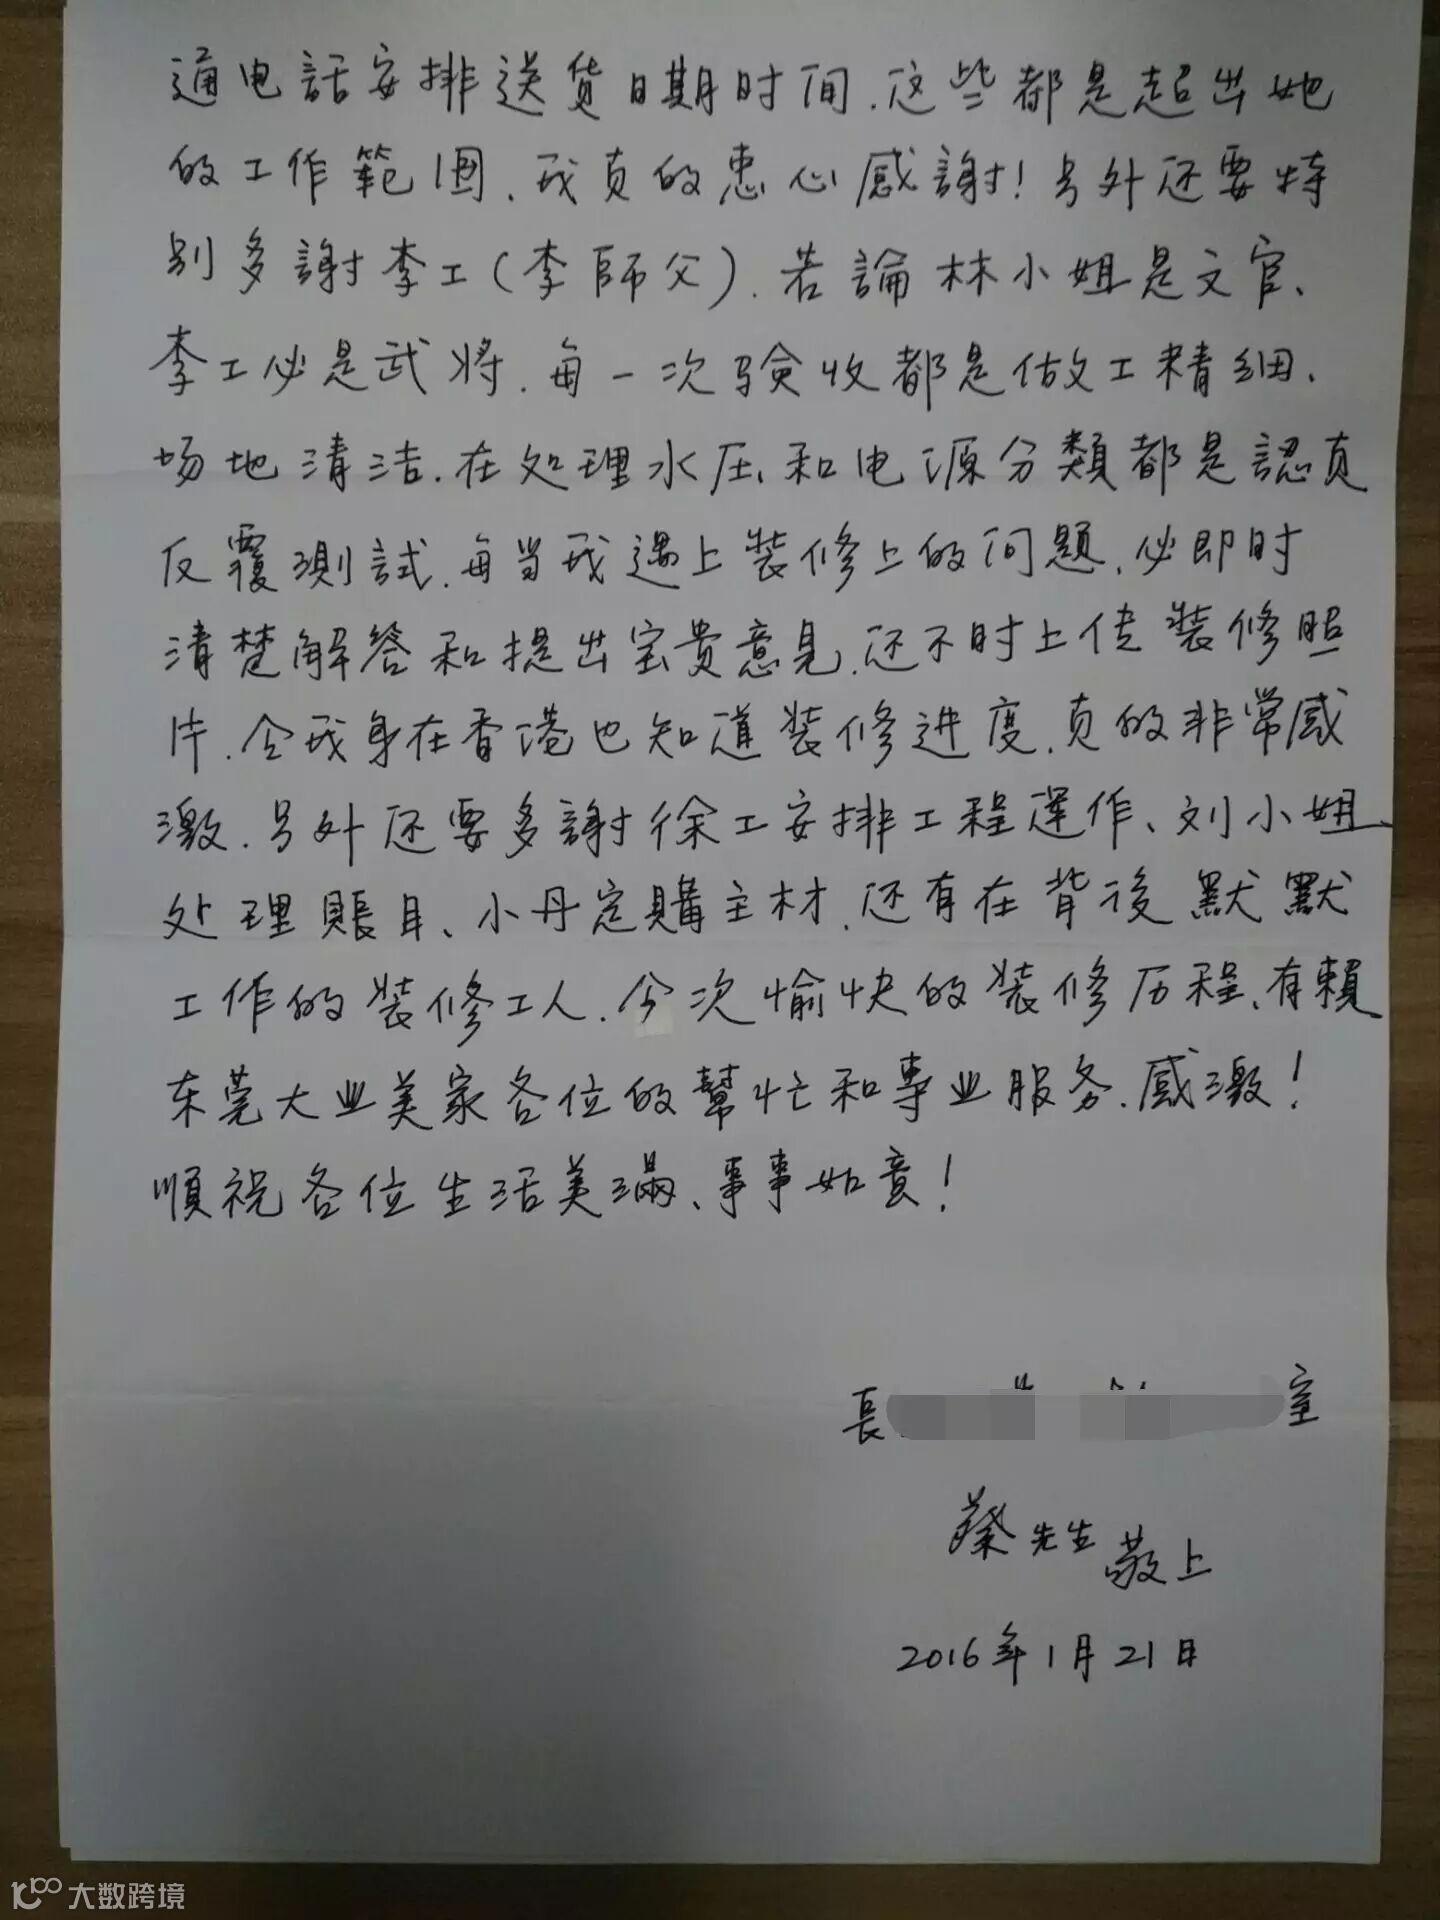 通电話安排送货日期时间.这些都是超出她
的工作範囲,我真的衷心感謝!另外还要特
别多謝李工(李師父).若論林小姐是文官、
李工必是武將.每一次驗收都是做工精细、
场地清洁.在处理水压、和电源分類都是認真
反覆測試.每当我遇上装修上的问题,必即时
清楚解答和提出宝贵意見.还不时上传装修照
片.令我身在香港也知道装修进度.真的非常感
激.另外还要多謝徐工安排工程運作、刘小姐、
处理賬目、小丹定購主材.还有在背後默默
工作的装修工人.今次愉快的装修历程、有賴
东莞大业美家各位的幫忙和專业服务.感激!
順祝各位生活美满、事事如意!
長
室
蔡先生敬上
2016年1月21日
大数跨境